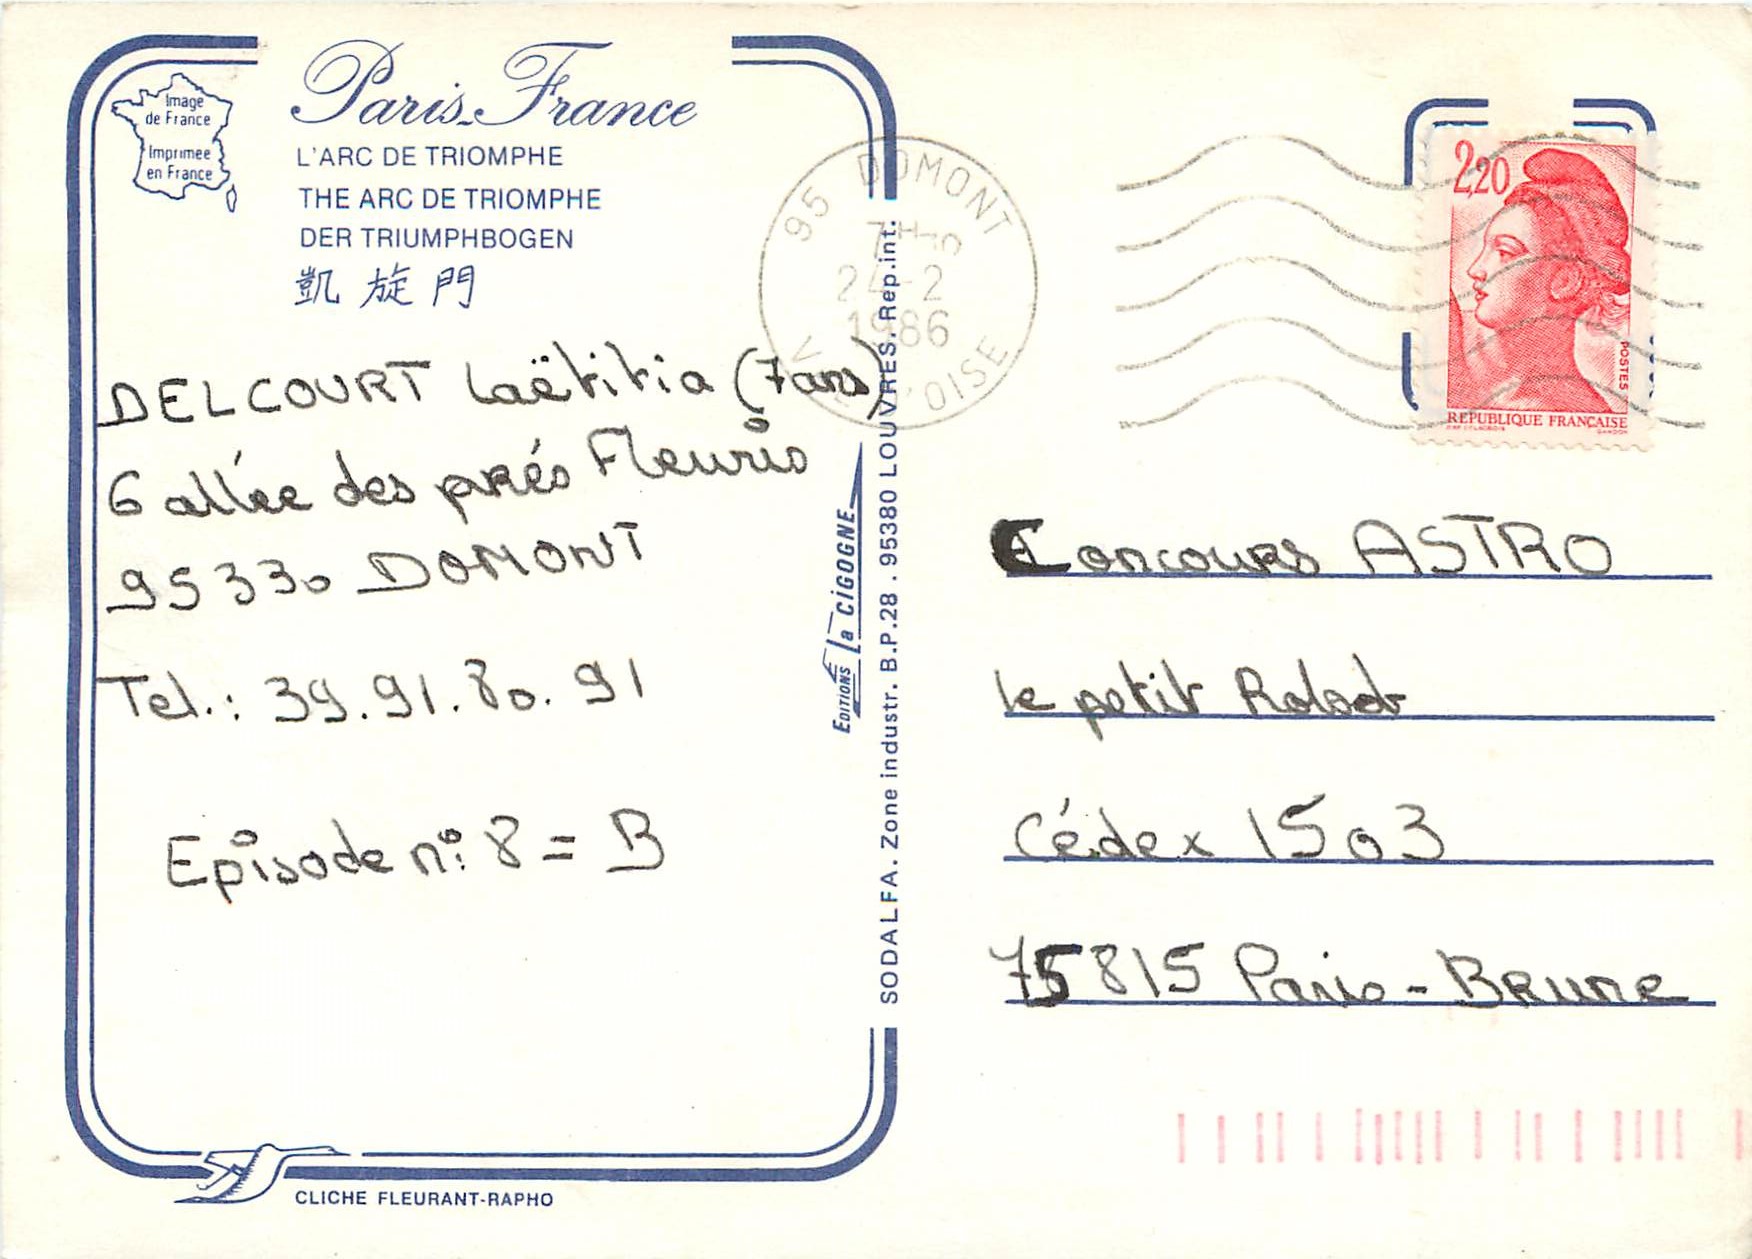 Image
de France
Imprimée
en France
Paris-France
L'ARC DE TRIOMPHE
THE ARC DE TRIOMPHE
DER TRIUMPHBOGEN
凱旋門
DELCOURT Laëtitia (7 ans)
6 allée des prés Fleuris
95330 DOMONT
Tel.: 39.91.80.91
Episode n°: 8 = B
CLICHE FLEURANT-RAPHO
EDITIONS La CIGOGNE
SODALFA. Zone industr. B.P.28. 95380 LOUVRES. Rep.int.
95 DOMONT
24-2
1986
OISE
2,20
POSTES
REPUBLIQUE FRANÇAISE
Concours ASTRO
le petit Robot
Cédex 1503
75815 Paris - Brune